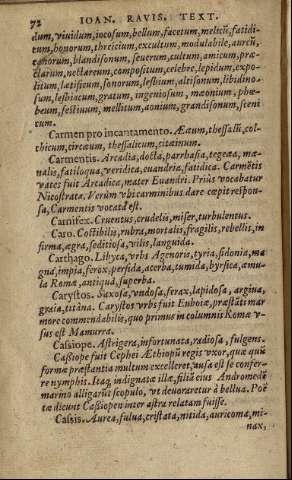 72 IOAN. RAVIS. TEXT.
dum, viuidum, iocosum, bellum, facetum, melicũ, fatidi-
cum, bonorum, threicium, excultum, modulabile, aureũ,
canorum, blandisonum, seuerum, cultum, amicum, præ-
clarum, nectareum, compositum, celebre, lepidum, expo-
litum, latisicum, sonorum, lesbium, altisonum, libidino-
sum, lesbiacum, gratum, ingeniosum, mæonium, phœ-
beum, festiuum, mellitum, aonium, grandisonum, sceni
cum.
Carmen pro incantamento. Ææum, thessalũ, col-
chicum, circæum, thessalicum, citainum.
Carmentis. Arcadia, docta, parrhasia, tegeæa, mæ-
nalis, fatiloqua, veridica, euandria, fatidica. Carmẽtis
vates fuit Arcadica, mater Euandri. Priùs vocabatur
Nicostrata. Verùm vbi carminibus dare cœpit respon-
sa, Carmentis vocata est.
Carnifex. Cruentus, crudelis, miser, turbulentus.
Caro. Costibilis, rubra, mortalis, fragilis, rebellis, in
firma, ægra, seditiosa, vilis, languida.
Carthago. Libyca, vrbs Agenoris, tyria, sidonia, ma
gna, impia, ferox, perfida, acerba, tumida, byrsica, æmu-
la Romæ, antiqua, superba.
Carystos. Saxosa, vndosa, ferax, lapidosa, argiua,
graia, titana. Carystos vrbs fuit Euboiæ, præstãti mar
more commendabilis, quo primus in columnis Romæ v-
sus est Mamurra.
Cassiope. Astrigera, infortunata, radiosa, fulgens.
Cassiope fuit Cephei Æthiopũ regis vxor, quæ quũ
formæ præstantia multum excelleret, ausa est se confer-
re nymphis. Itaq; indignatæ illæ, filiã eius Andromedẽ
marino alligarũt scopulo, vt deuoraretur à bellua. Poë
tæ dicunt Cassiopen inter astra relatam fuisse.
Cassis. Aurea, fulua, cristata, nitida, auricoma, mi-
nax,